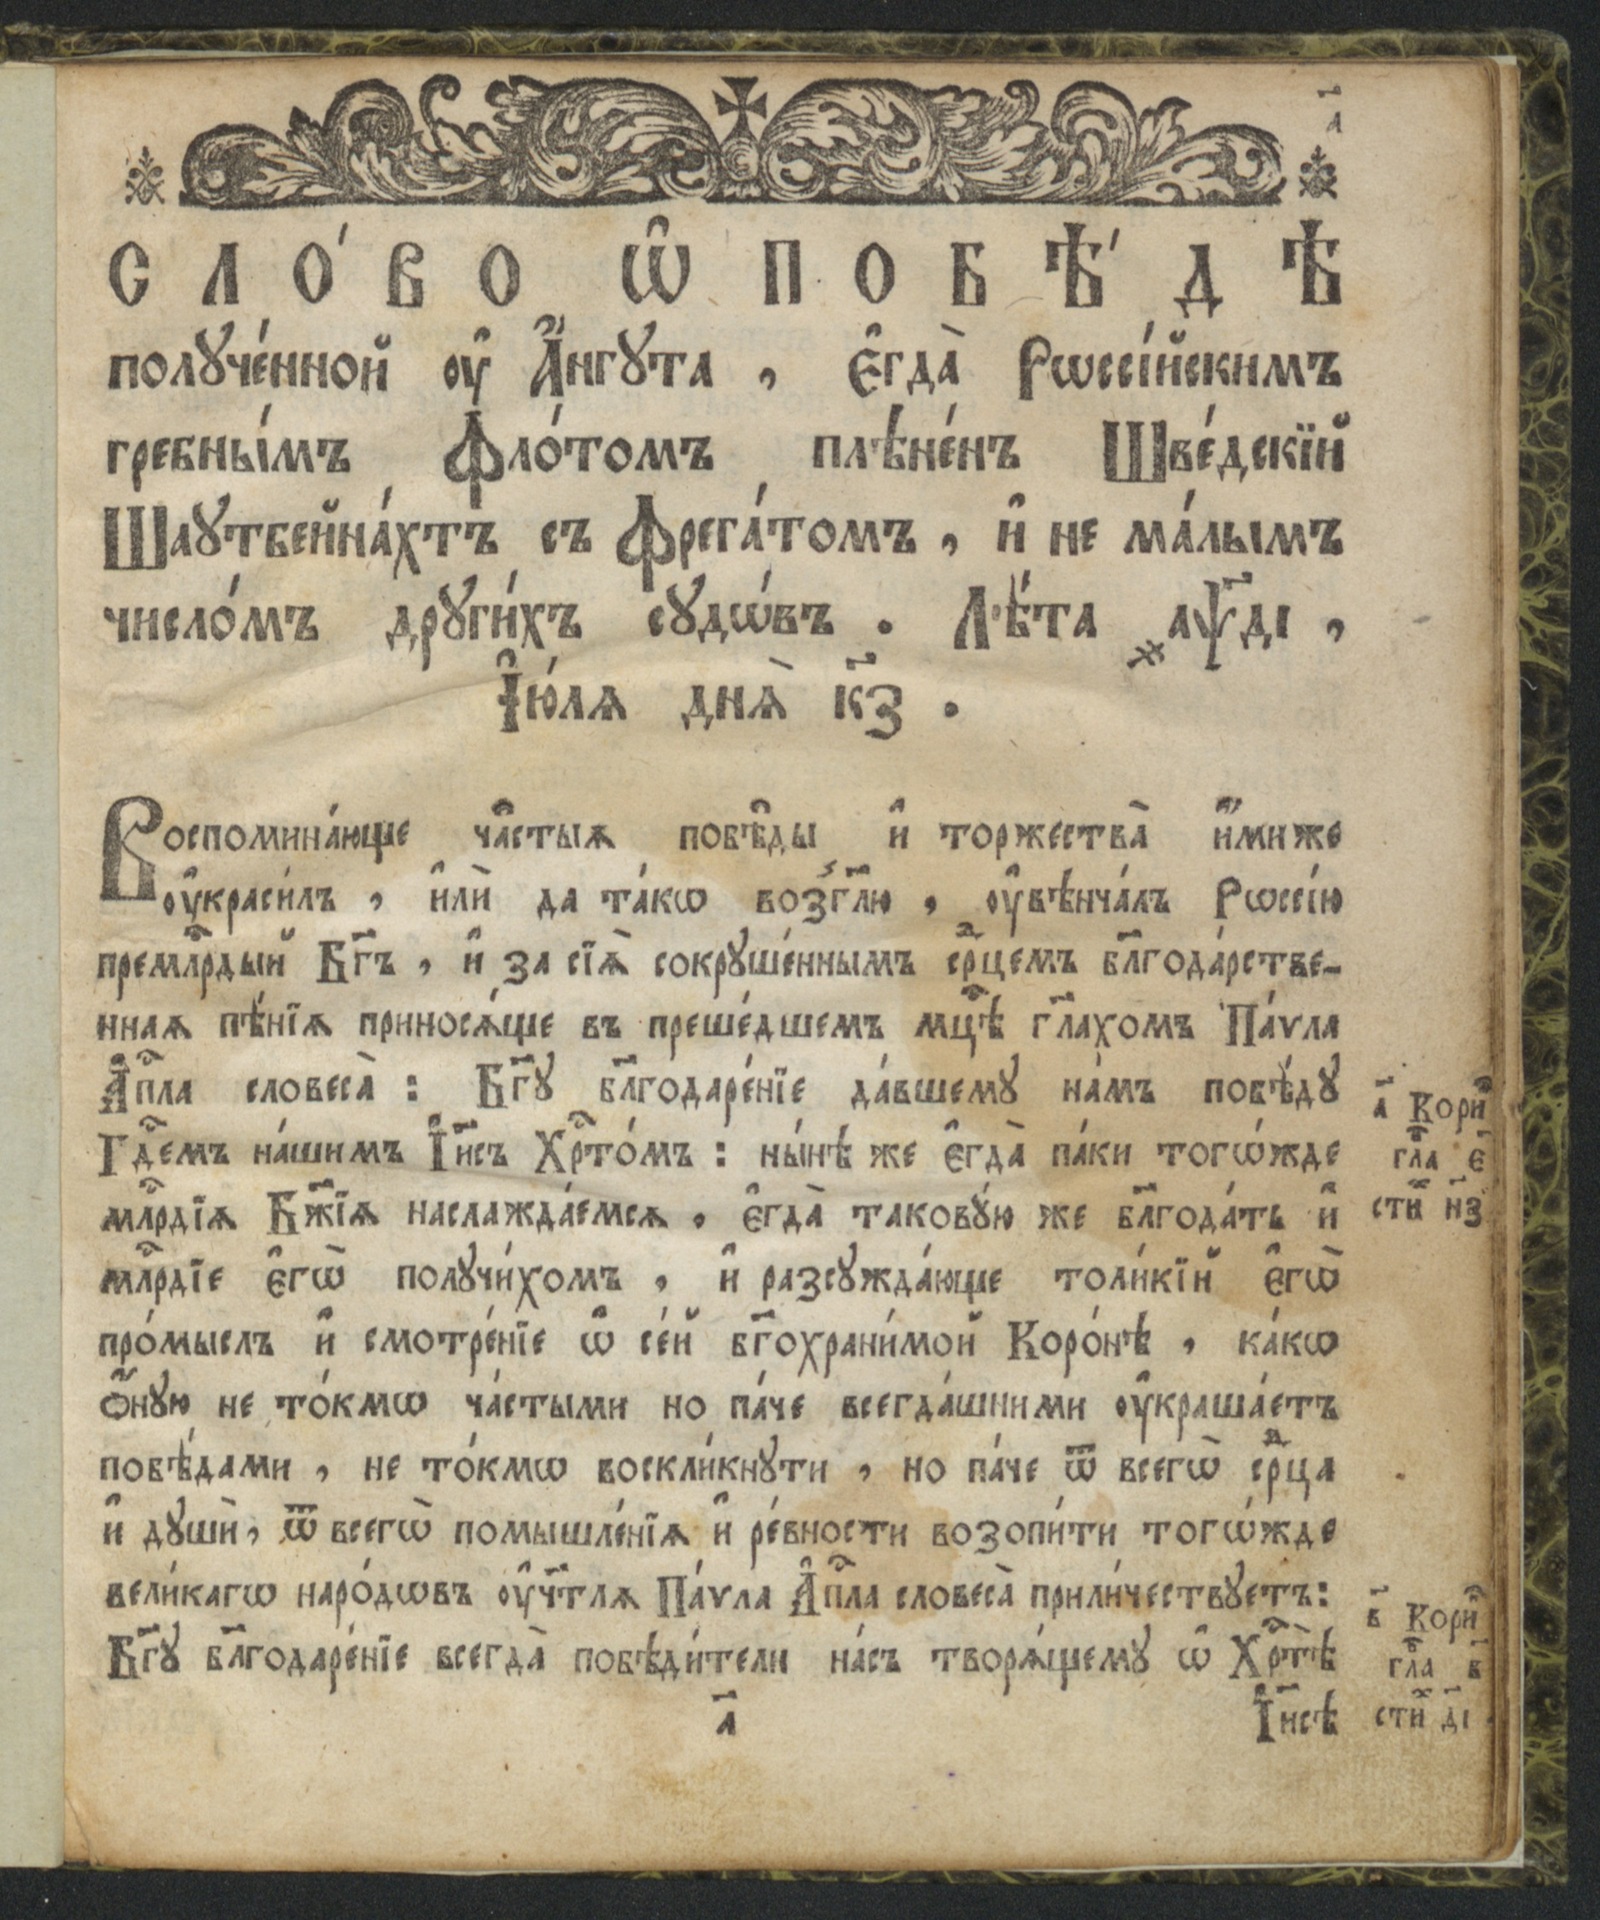 а҃
СЛО́ВО Ѡ҆ ПОБѢ́ДѢ
полꙋче́нной ᲂу҆ А҆́нгꙋта, є҆гда̀ Рѡссі́йскимъ
гребны́мъ Фло́томъ плѣне́нъ Шве́дскїй
Шаꙋтбейна́хтъ съ Фрега́томъ, и҆ не ма́лымъ
число́мъ дрꙋги́хъ сꙋдѡ́въ. Лѣ́та ҂аѱ҃ді,
І҆ю́лѧ днѧ̀ к҃з.
Воспомина́юще ча҆стыѧ побѣ҆ды и҆ торжества̀ и҆́миже
ᲂу҆краси́лъ, и҆лѝ да та́кѡ возг҃лю, ᲂу҆вѣнча́лъ Рѡссі́ю
премлⷭ҇рдый Бг҃ъ, и҆ за сїѧ̀ сокрꙋше́ннымъ срⷣцемъ бл҃года́рстве-
ннаѧ пѣ́нїѧ приносѧ́ще въ преше́дшемъ мцⷭ҇ѣ гл҃ахомъ Па́ѵла
А҆пⷭ҇ла словеса̀: Бг҃ꙋ бл҃годаре́нїе да́вшемꙋ на́мъ побѣ́дꙋ
Гдⷭ҇емъ на́шимъ І҆и҃съ Хрⷭ҇то́мъ: ны́нѣ же є҆гда̀ па́ки тогѡ́жде
млⷭ҇рдїѧ Бж҃їѧ наслажда́емсѧ. є҆гда̀ таковꙋ́ю же бл҃года́ть и҆
млⷭ҇рдїе є҆гѡ̀ полꙋчи́хомъ, и҆ разсꙋжда́юще толи́кїй є҆гѡ̀
про́мыслъ и҆ смотре́нїе ѡ҆ се́й бг҃охрани́мой Коро́нѣ, ка́кѡ
ѻ҆́нꙋю не то́кмѡ ча́стыми но па́че всегда́шними ᲂу҆краша́етъ
побѣ́дами, не то́кмѡ воскли́кнꙋти, но па́че ѿ всегѡ̀ срⷣца
и҆ дꙋшѝ, ѿ всегѡ̀ помышле́нїѧ и҆ ре́вности возопи́ти тогѡ́жде
вели́кагѡ наро́дѡвъ ᲂу҆чт҃лѧ Па́ѵла А҆пⷭ҇ла словеса̀ прили́чествꙋетъ:
Бг҃ꙋ бл҃годаре́нїе всегда̀ побѣди́тели на́съ творѧ́щемꙋ ѡ҆ Хрⷭ҇тѣ̀
а҃ І҆и҃сѣ
а҃ Кори҆ⁿ
глⷡ҇а є҃
стиⷯ н҃з
в҃ Кори҆ⁿ
глⷡ҇а в҃
стиⷯ ді҃